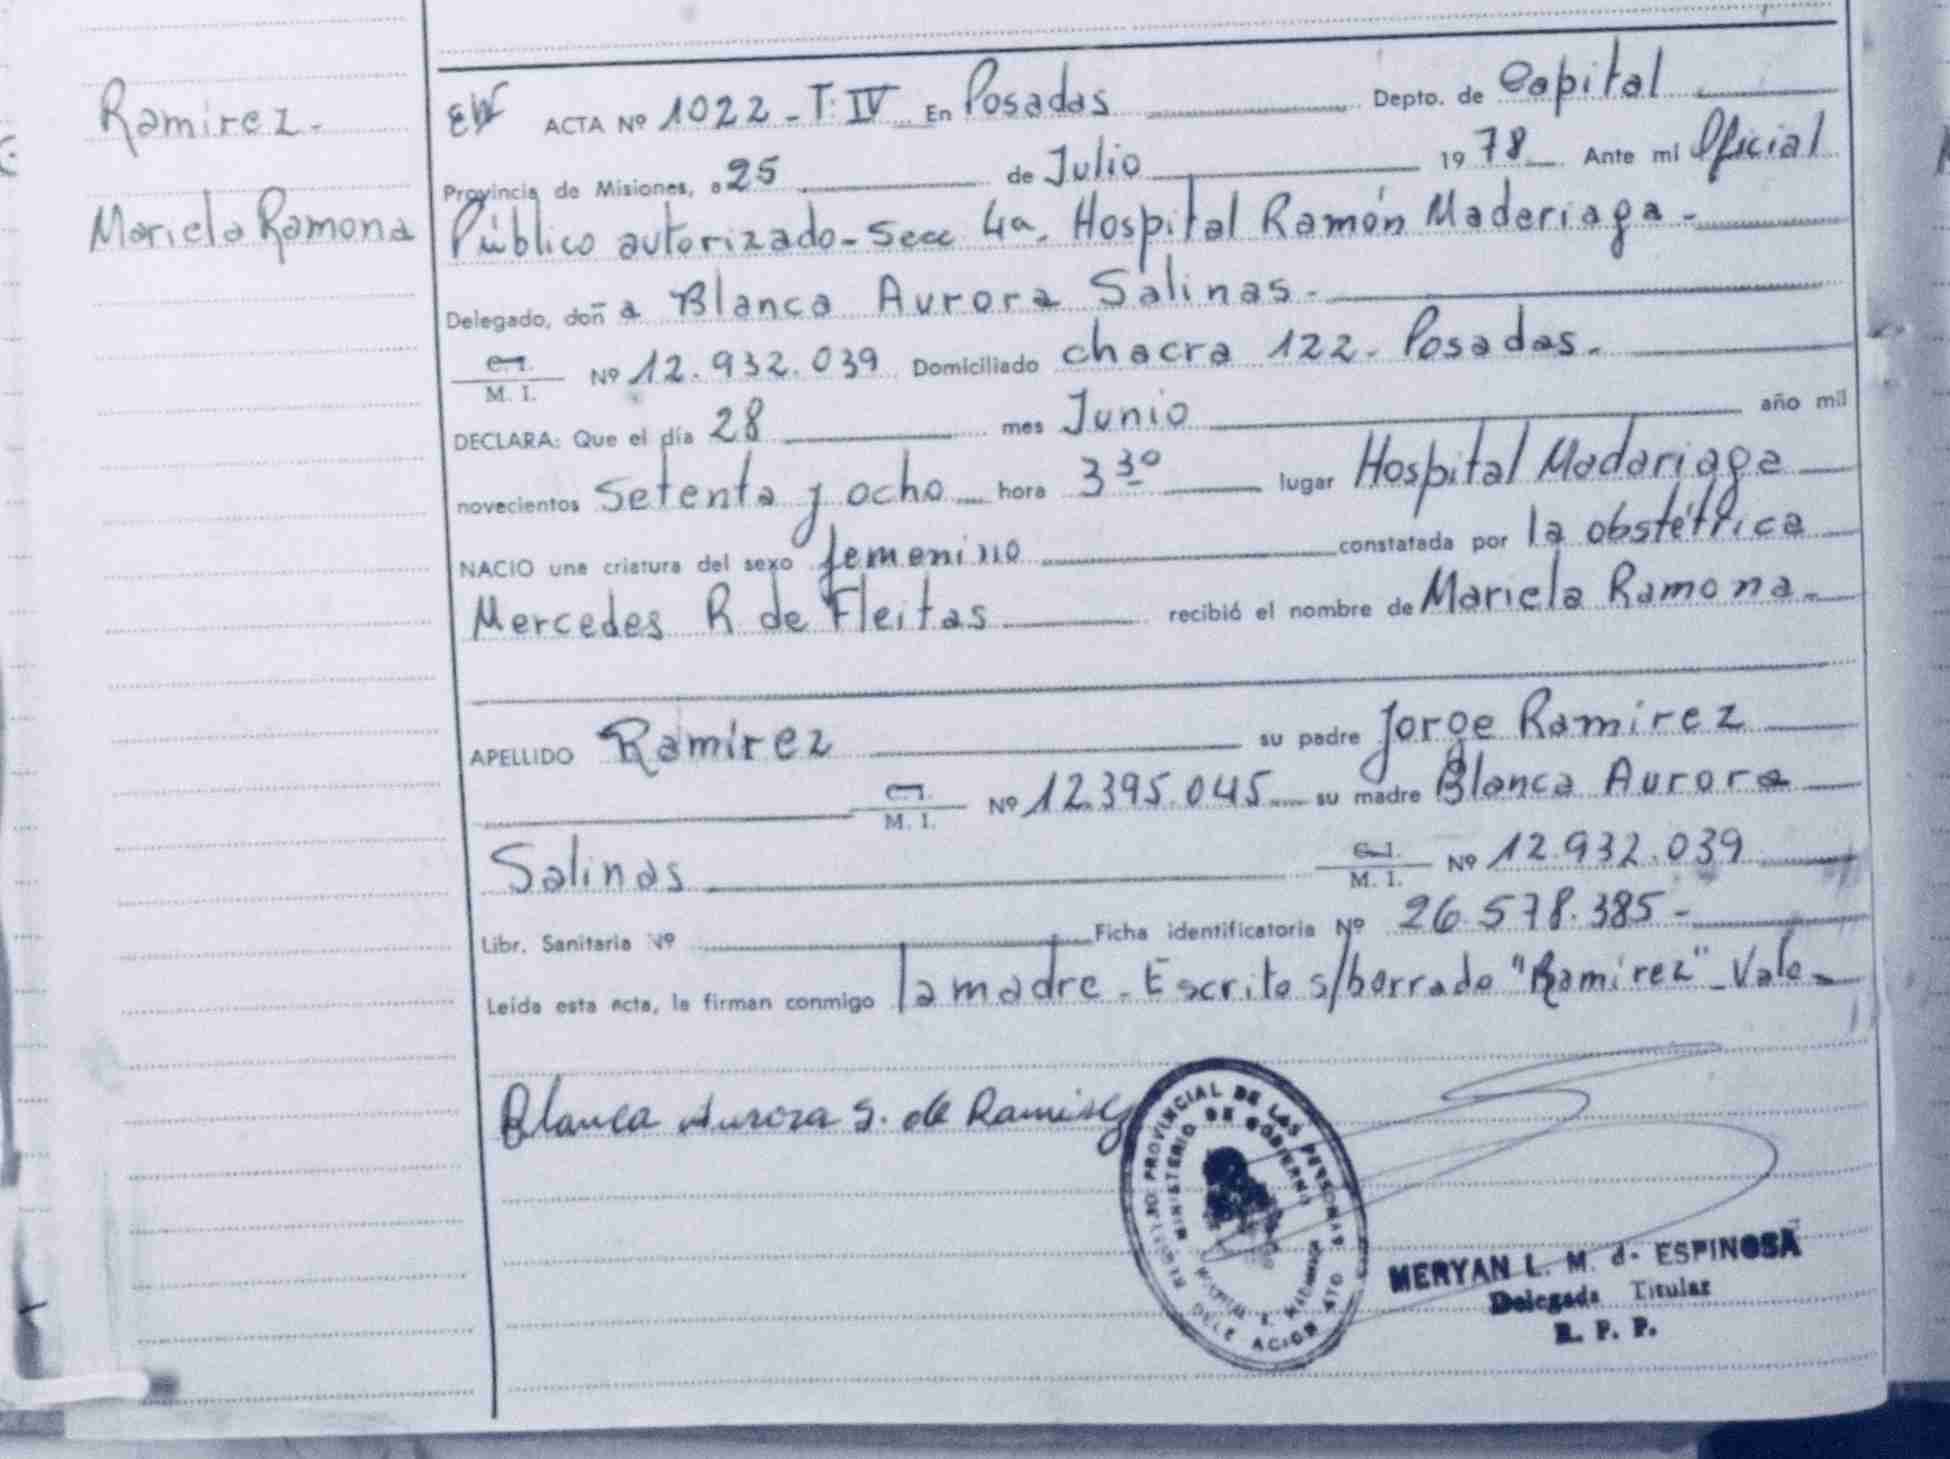 Ramirez.
Mariela Ramona
ACTA Nº 1022 - T: IV En Posadas Depto. de Capital
Provincia de Misiones, a 25 de Julio 1978 Ante mi Oficial
Público autorizado - Secc 4a. Hospital Ramón Maderiaga -
Delegado, doña Blanca Aurora Salinas.
C. I. M. I. Nº 12.932.039 Domiciliado chacra 122. Posadas.
DECLARA: Que el día 28 mes Junio año mil
novecientos Setenta y ocho hora 3 30 lugar Hospital Madariaga
NACIO una criatura del sexo femenino constatada por la obstétrica
Mercedes R de Fleitas recibió el nombre de Mariela Ramona.
APELLIDO Ramirez su padre Jorge Ramirez
C. I. M. I. Nº 12.395.045 su madre Blanca Aurora
Salinas C. I. M. I. Nº 12.932.039
Libr. Sanitaria Nº Ficha identificatoria Nº 26.578.385 -
Leída esta acta, la firman conmigo la madre - Escrito s/borrado "Ramirez" - Vale -
Blanca Aurora S. de Ramirez
REGISTRO PROVINCIAL DE LAS PERSONAS
MINISTERIO DE GOBIERNO
MERYAN L. M. d- ESPINOSA
Delegada Titular
R. P. P.